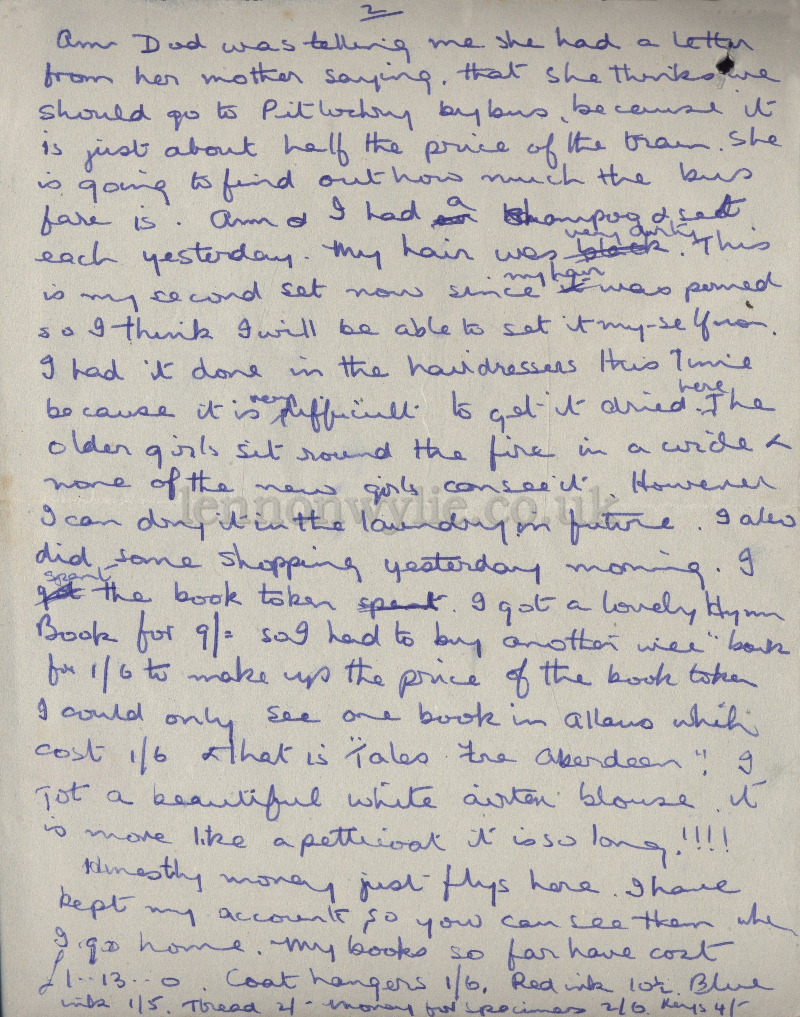 2
Ann Dod was telling me she had a letter
from her mother saying. that she thinks we
should go to Pitlochry by bus, because it
is just about half the price of the train. She
is going to find out how much the bus
fare is. Ann & I had a shampoo & set
each yesterday. My hair was very dirty. This
is my second set now since my hair was permed
so I think I will be able to set it my-self now.
I had it done in the hairdressers this Time
because it is very difficult to get it dried here. The
older girls sit round the fire in a circle &
none of the new girls can see it. However
I can dry it in the laundry in future. I also
did some shopping yesterday morning. I
spent the book token spent. I got a lovely Hymn
Book for 9/= so I had to buy another wee "book
for 1/6 to make up the price of the book token
I could only see one book in Allans which
cost 1/6 & that is "Tales Fre Aberdeen". I
got a beautiful white airtex blouse. it
is more like a petticoat it is so long!!!!
Honestly money just flys here. I have
kept my accounts so you can see them when
I go home. My books so far have cost
£1-13-0. Coat hangers 1/6. Red ink 10½. Blue
ink 1/5. Thread 2/- Money for specimens 2/6. Keys 4/-
lennonwylie.co.uk